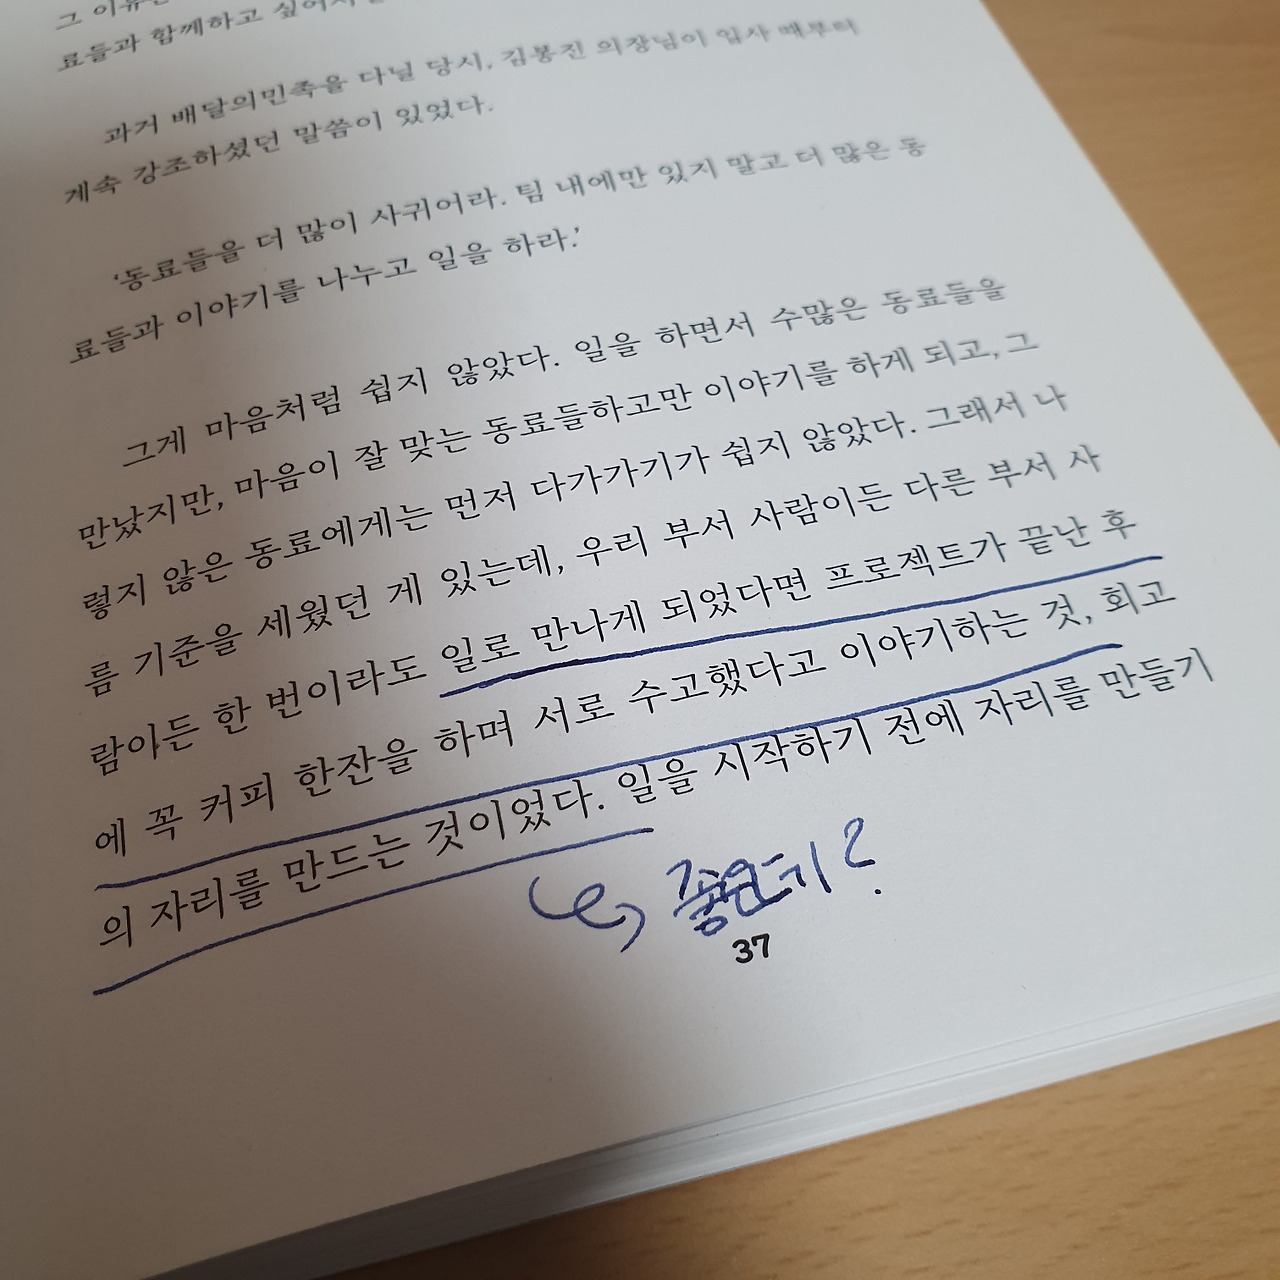 그 이유는
료들과 함께하고 싶어서
과거 배달의민족을 다닐 당시, 김봉진 의장님이 입사 때부터
계속 강조하셨던 말씀이 있었다.
‘동료들을 더 많이 사귀어라. 팀 내에만 있지 말고 더 많은 동
료들과 이야기를 나누고 일을 하라.’
그게 마음처럼 쉽지 않았다. 일을 하면서 수많은 동료들을
만났지만, 마음이 잘 맞는 동료들하고만 이야기를 하게 되고, 그
렇지 않은 동료에게는 먼저 다가가기가 쉽지 않았다. 그래서 나
름 기준을 세웠던 게 있는데, 우리 부서 사람이든 다른 부서 사
람이든 한 번이라도 일로 만나게 되었다면 프로젝트가 끝난 후
에 꼭 커피 한잔을 하며 서로 수고했다고 이야기하는 것, 회고
의 자리를 만드는 것이었다. 일을 시작하기 전에 자리를 만들기
좋은데?
37